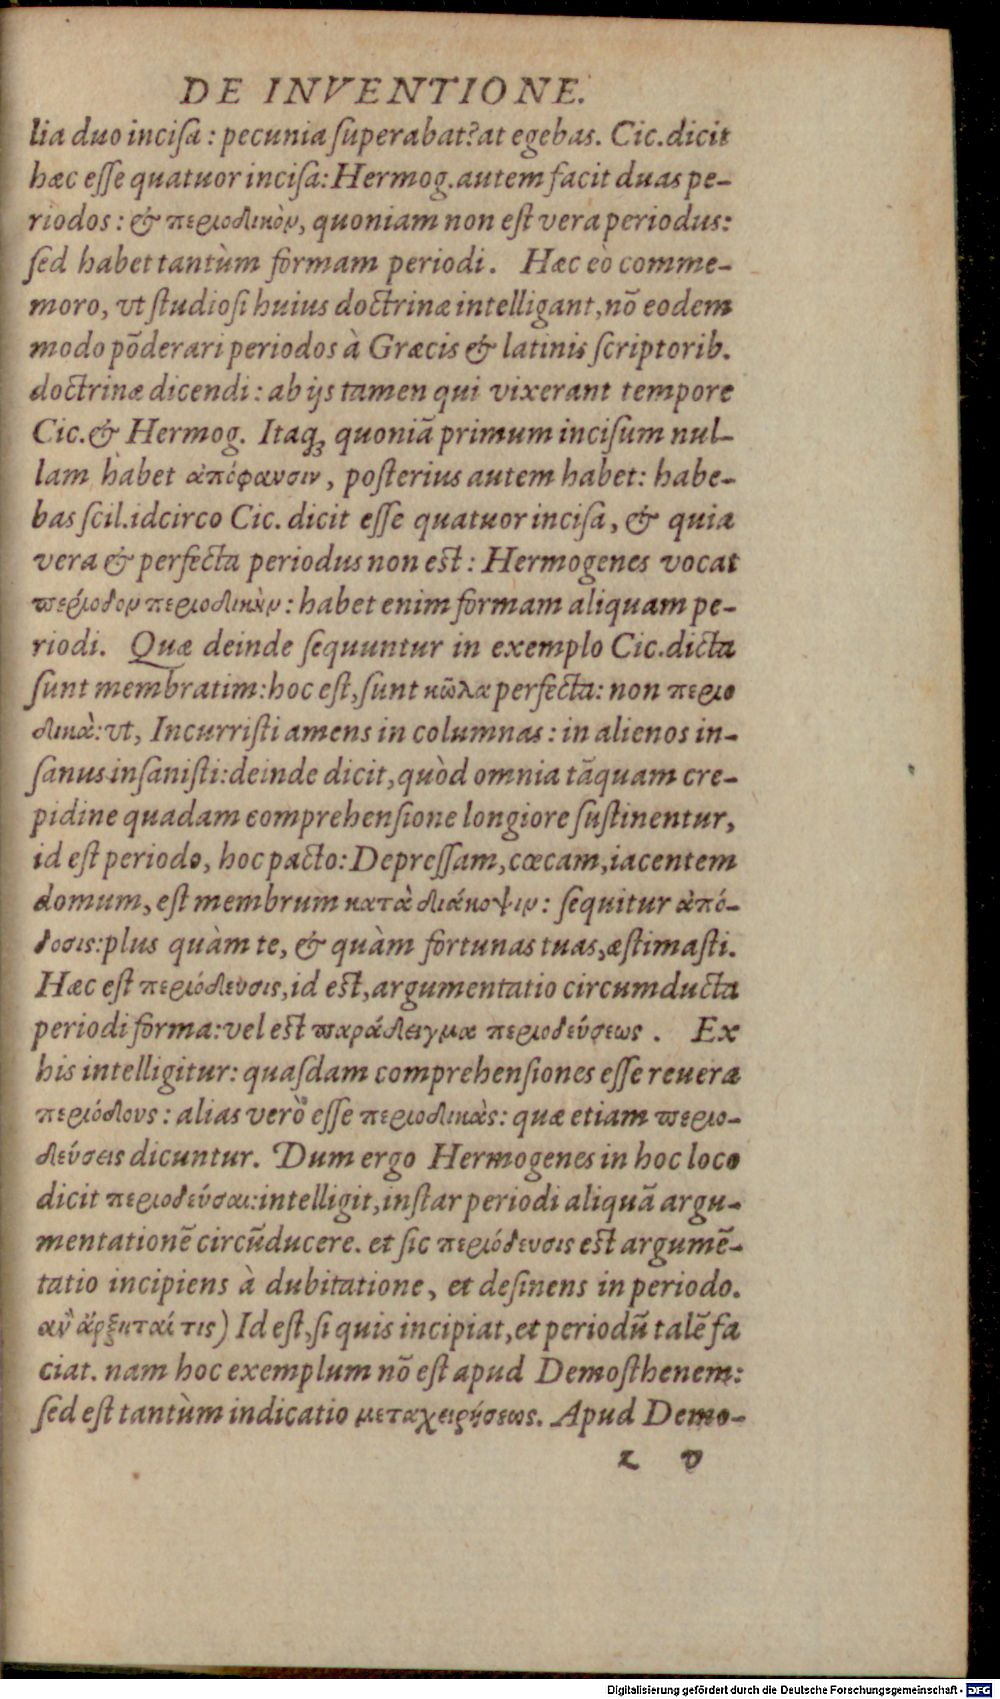 DE INVENTIONE.
lia duo incisa: pecunia superabat? at egebas. Cic. dicit
hæc esse quatuor incisa: Hermog. autem facit duas pe-
riodos: & περιοδικὸν, quoniam non est vera periodus:
sed habet tantùm formam periodi. Hæc eò comme-
moro, vt studiosi huius doctrinæ intelligant, nō eodem
modo pōderari periodos à Græcis & latinis scriptorib.
doctrinæ dicendi: ab ijs tamen qui vixerant tempore
Cic. & Hermog. Itaq; quoniā primum incisum nul-
lam habet ἀπόφανσιν, posterius autem habet: habe-
bas scil. idcirco Cic. dicit esse quatuor incisa, & quia
vera & perfecta periodus non est: Hermogenes vocat
περίοδον περιοδικὴν: habet enim formam aliquam pe-
riodi. Quæ deinde sequuntur in exemplo Cic. dicta
sunt membratim: hoc est, sunt κῶλα perfecta: non περιο
δικὰ: vt, Incurristi amens in columnas: in alienos in-
sanus insanisti: deinde dicit, quòd omnia tāquam cre-
pidine quadam comprehensione longiore sustinentur,
id est periodo, hoc pacto: Depressam, cæcam, iacentem
domum, est membrum κατὰ διάκοψιν: sequitur ἀπό-
δοσις: plus quàm te, & quàm fortunas tuas, æstimasti.
Hæc est περιόδευσις, id est, argumentatio circumducta
periodi forma: vel est παράδειγμα περιοδεύσεως. Ex
his intelligitur: quasdam comprehensiones esse reuera
περιόδους: alias verò esse περιοδικὰς: quæ etiam περιο-
δεύσεις dicuntur. Dum ergo Hermogenes in hoc loco
dicit περιοδεύσαι: intelligit, instar periodi aliquā argu-
mentationē circūducere. et sic περιόδευσις est argumē-
tatio incipiens à dubitatione, et desinens in periodo.
ἂν ἄρξηταί τις) Id est, si quis incipiat, et periodū talē fa
ciat. nam hoc exemplum nō est apud Demosthenem:
sed est tantùm indicatio μεταχειρήσεως. Apud Demo-
z v
Digitalisierung gefördert durch die Deutsche Forschungsgemeinschaft - DFG